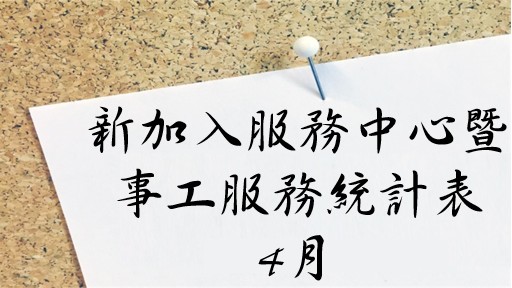 新加入服務中心暨
事工服務統計表
4月